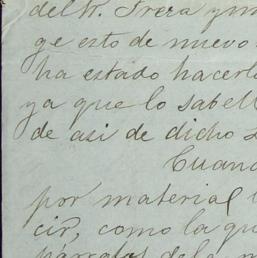 del Sr. Frera y m
ge esto de nuevo
ha estado hacerl
ya que lo sabe
de asi de dicho
Cuand
por material
cir, como la qu
párrafos de la m